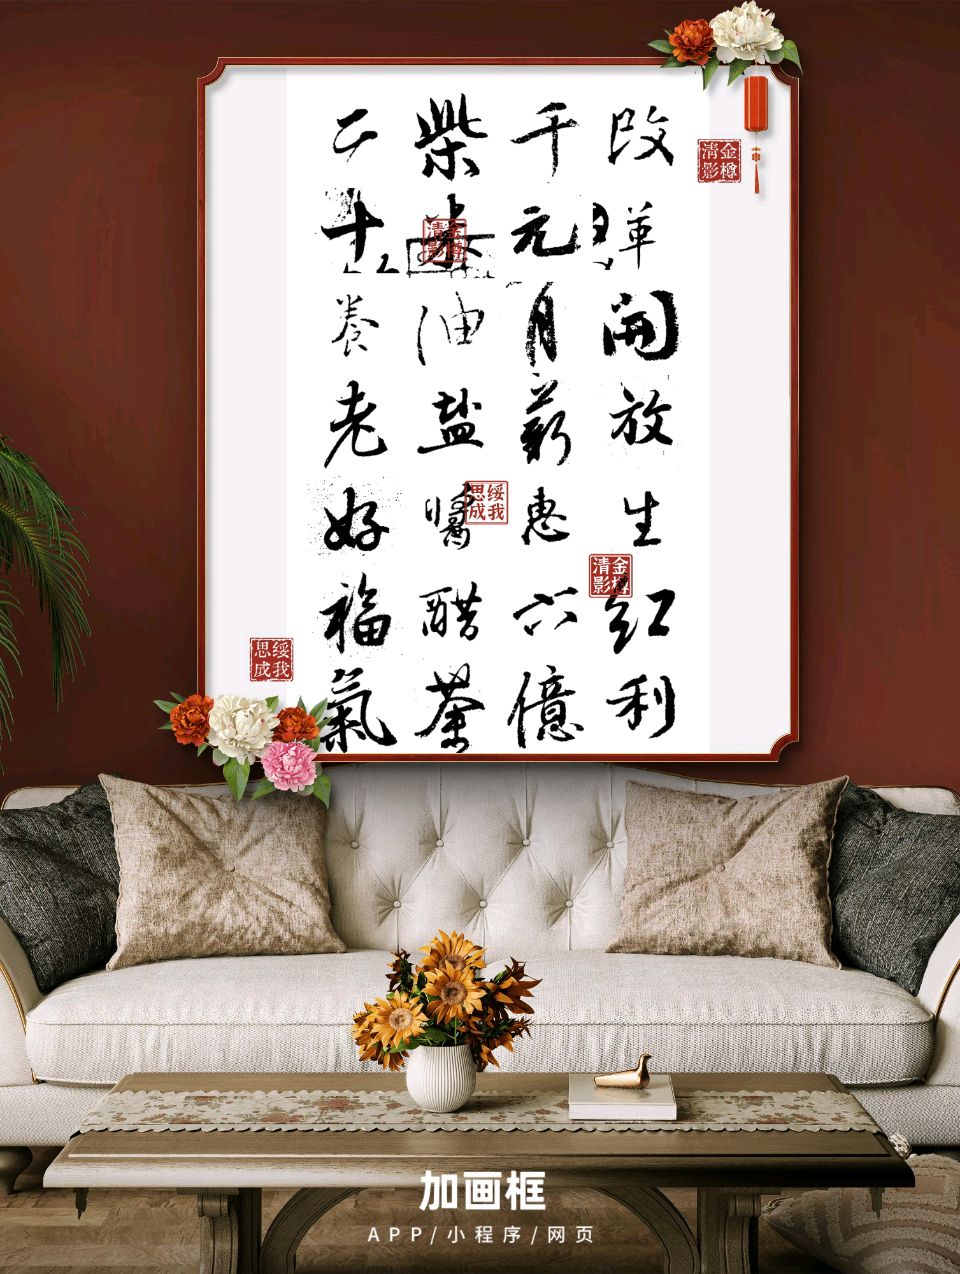 改革開放生红利
千元月薪惠六億
柴米油盐醬醋茶
二十養老好福氣
金樽清影
金樽清影
绥我思成
金樽清影
绥我思成
加画框
APP/小程序/网页